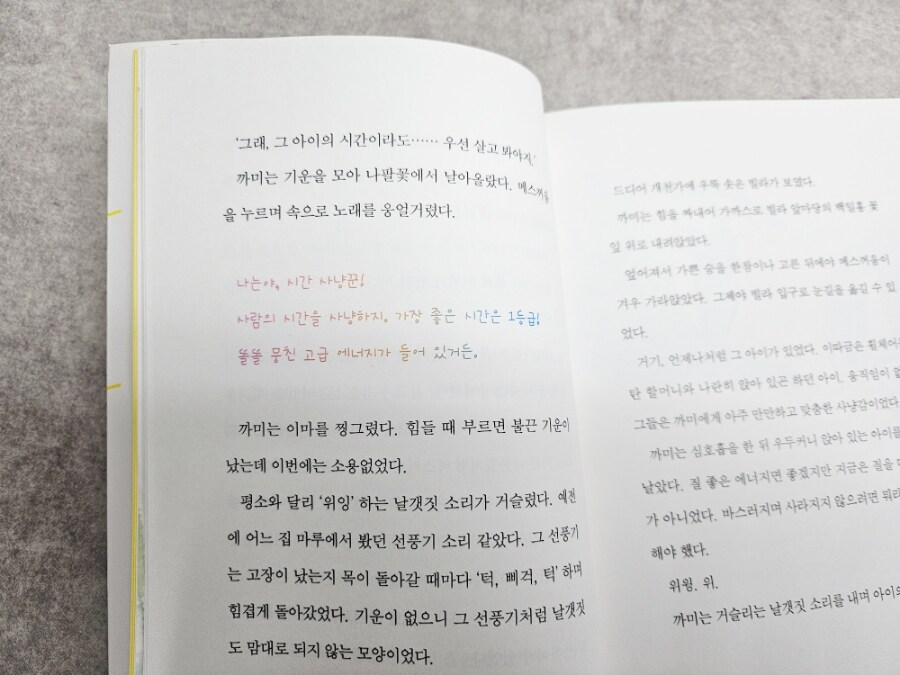 ‘그래, 그 아이의 시간이라도…… 우선 살고 봐야지.’
까미는 기운을 모아 나팔꽃에서 날아올랐다. 메스꺼움
을 누르며 속으로 노래를 웅얼거렸다.
나는야, 시간 사냥꾼!
사람의 시간을 사냥하지. 가장 좋은 시간은 1등급!
똘똘 뭉친 고급 에너지가 들어 있거든.
까미는 이마를 찡그렸다. 힘들 때 부르면 불끈 기운이
났는데 이번에는 소용없었다.
평소와 달리 ‘위잉’ 하는 날갯짓 소리가 거슬렸다. 예전
에 어느 집 마루에서 봤던 선풍기 소리 같았다. 그 선풍기
는 고장이 났는지 목이 돌아갈 때마다 ‘턱, 삐걱, 턱’ 하며
힘겹게 돌아갔었다. 기운이 없으니 그 선풍기처럼 날갯짓
도 맘대로 되지 않는 모양이었다.
드디어 개천가에 우뚝 솟은 빌라가 보였다.
까미는 힘을 짜내어 가까스로 빌라 앞마당의 백일홍 꽃
잎 위로 내려앉았다.
엎어져서 가쁜 숨을 한참이나 고른 뒤에야 메스꺼움이
겨우 가라앉았다. 그제야 빌라 입구로 눈길을 옮길 수 있
었다.
거기, 언제나처럼 그 아이가 있었다. 이따금은 휠체어를
탄 할머니와 나란히 앉아 있곤 하던 아이. 움직임이 없
그들은 까미에게 아주 만만하고 맞춤한 사냥감이었다
까미는 심호흡을 한 뒤 우두커니 앉아 있는 아이를
날았다. 질 좋은 에너지면 좋겠지만 지금은 질을 따
가 아니었다. 바스러지며 사라지지 않으려면 뭐라
해야 했다.
위윙. 위.
까미는 거슬리는 날갯짓 소리를 내며 아이의